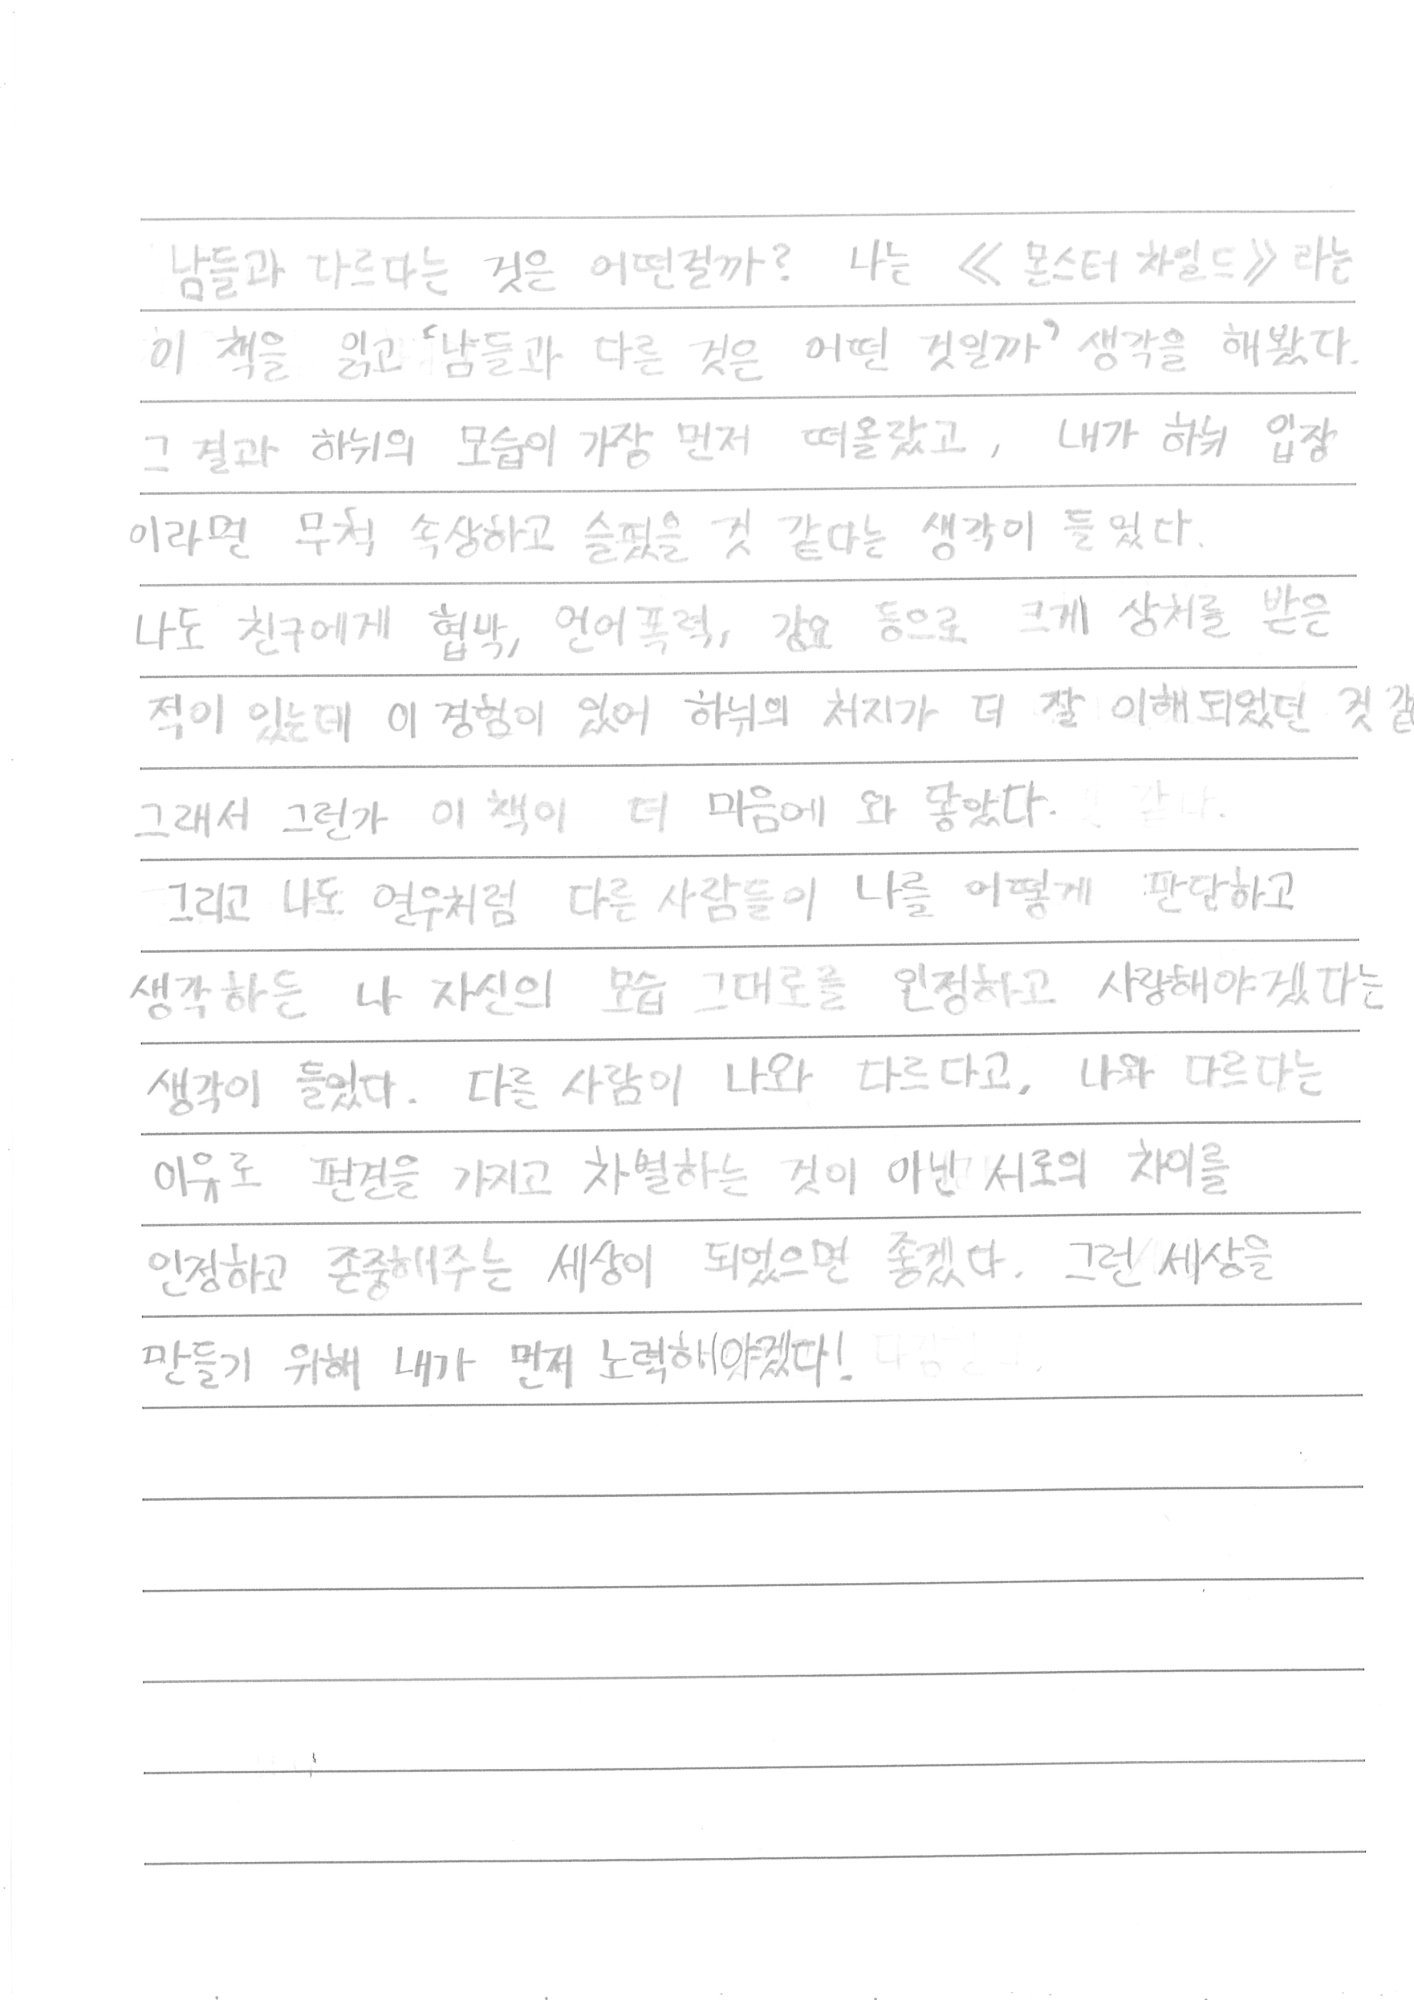 남들과 다르다는 것은 어떤걸까? 나는 《몬스터 차일드》라는
이 책을 읽고 '남들과 다른 것은 어떤 것일까' 생각을 해봤다.
그 결과 하늬의 모습이 가장 먼저 떠올랐고, 내가 하늬 입장
이라면 무척 속상하고 슬펐을 것 같다는 생각이 들었다.
나도 친구에게 협박, 언어폭력, 강요 등으로 크게 상처를 받은
적이 있는데 이 경험이 있어 하늬의 처지가 더 잘 이해되었던 것 같
그래서 그런가 이 책이 더 마음에 와 닿았다.
그리고 나도 연우처럼 다른 사람들이 나를 어떻게 판단하고
생각하든 나 자신의 모습 그대로를 인정하고 사랑해야겠다는
생각이 들었다. 다른 사람이 나와 다르다고, 나와 다르다는
이유로 편견을 가지고 차별하는 것이 아닌 서로의 차이를
인정하고 존중해주는 세상이 되었으면 좋겠다. 그런 세상을
만들기 위해 내가 먼저 노력해야겠다!